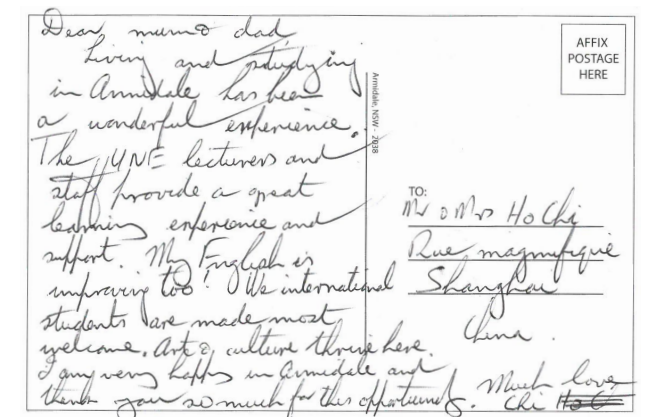 Dear mum & dad
Living and studying
in Armidale has been
a wonderful experience.
The UNE lecturers and
staff provide a great
learning experience and
support. My English is
improving too! We international
students are made most
welcome. Art & culture thrive here.
I am very happy in Armidale and
thank you so much for this opportunity.
Much love,
Chi Ho C
AFFIX
POSTAGE
HERE
Armidale, NSW - 2038
TO:
Mr & Mrs Ho Chi
Rue magnifique
Shanghai
China.